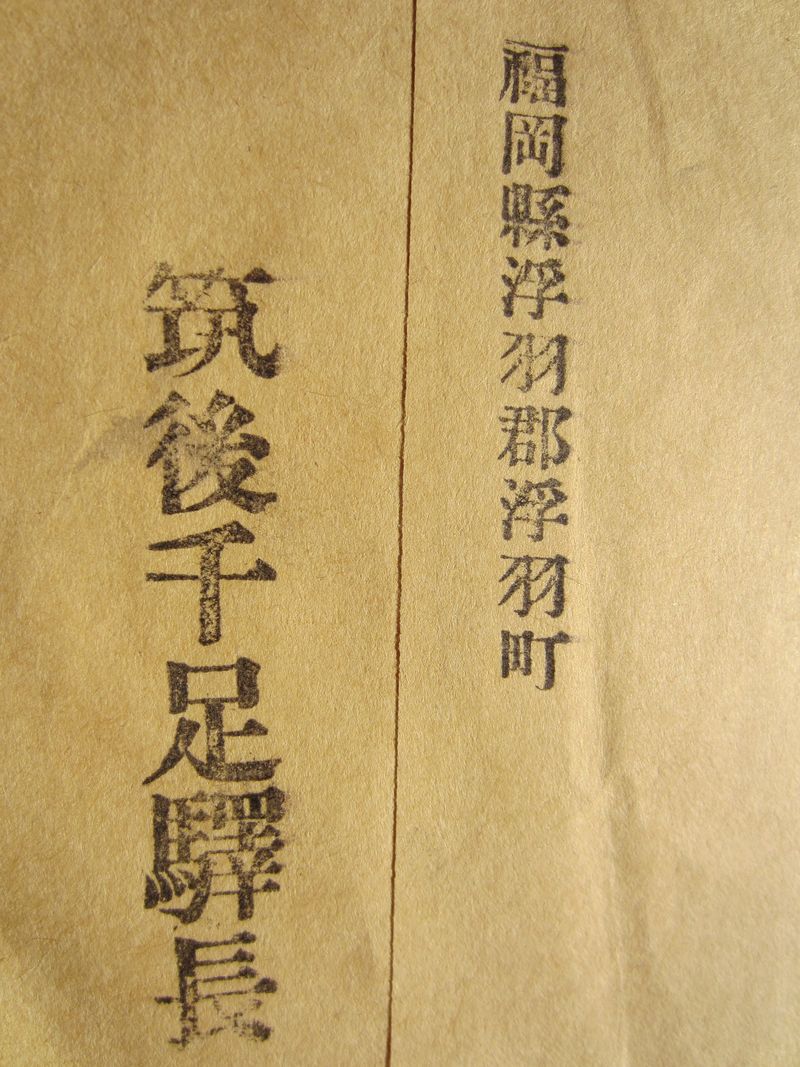 福岡縣浮羽郡浮羽町
筑後千足驛長